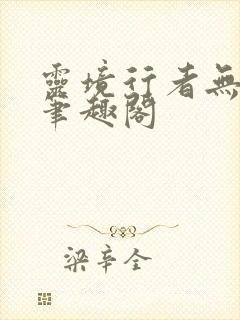 靈境行者無
筆趣閣
梁辛全